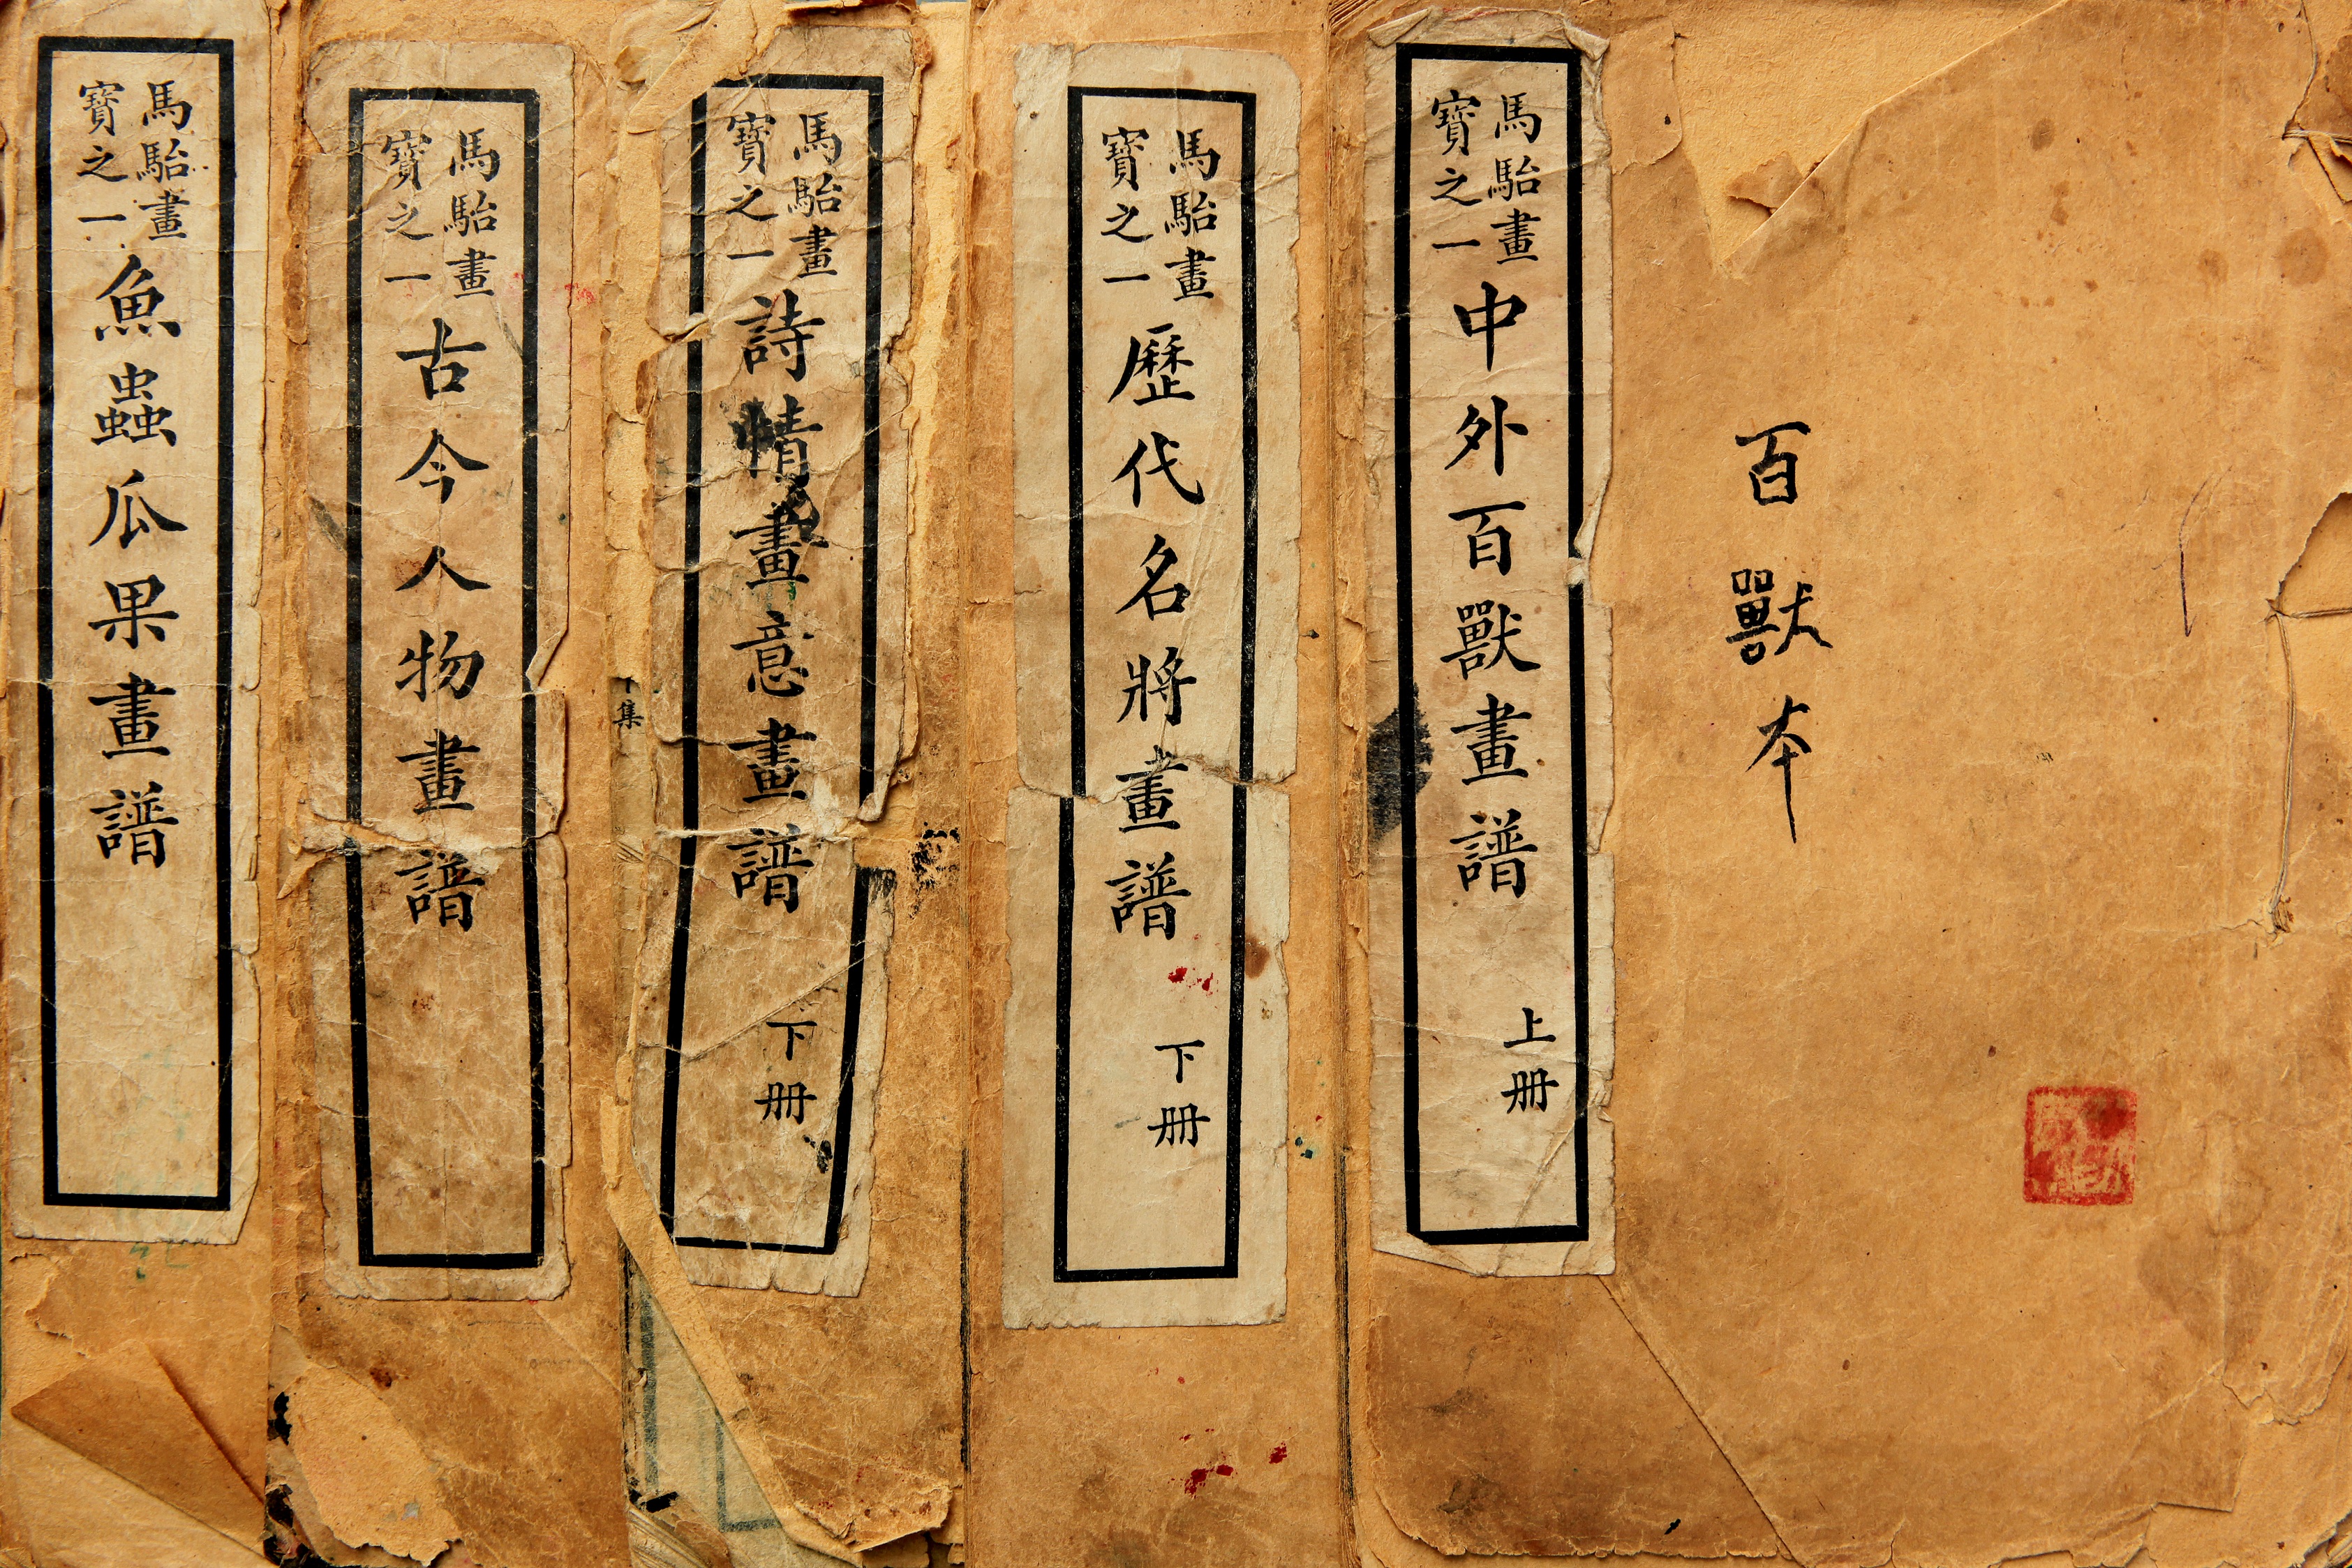 百獸本
馬駘畫
寶之一
中外百獸畫譜
上册
馬駘畫
寶之一
歷代名將畫譜
下册
馬駘畫
寶之一
詩情畫意畫譜
下册
下集
馬駘畫
寶之一
古今人物畫譜
馬駘畫
寶之一
魚蟲瓜果畫譜